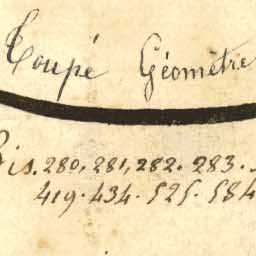 Coupé Géomètre
is. 280, 281, 282. 283.
419. 434. 525. 584